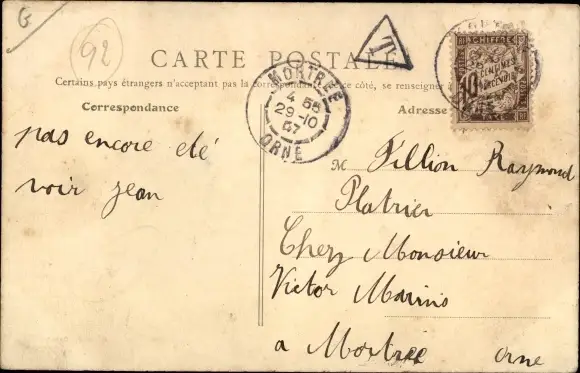 G
92
CARTE POSTALE
T
Certains pays étrangers n'acceptant pas la correspondance de ce côté, se renseigner à
Correspondance
Adresse
MORTRÉE
4 55
29-10
07
ORNE
CHIFFRE
10
CENTIMES
À PERCEVOIR
pas encore été
voir jean
M Fillion Raymond
Platrier
Chez Monsieur
Victor Marins
a Mortrée orne